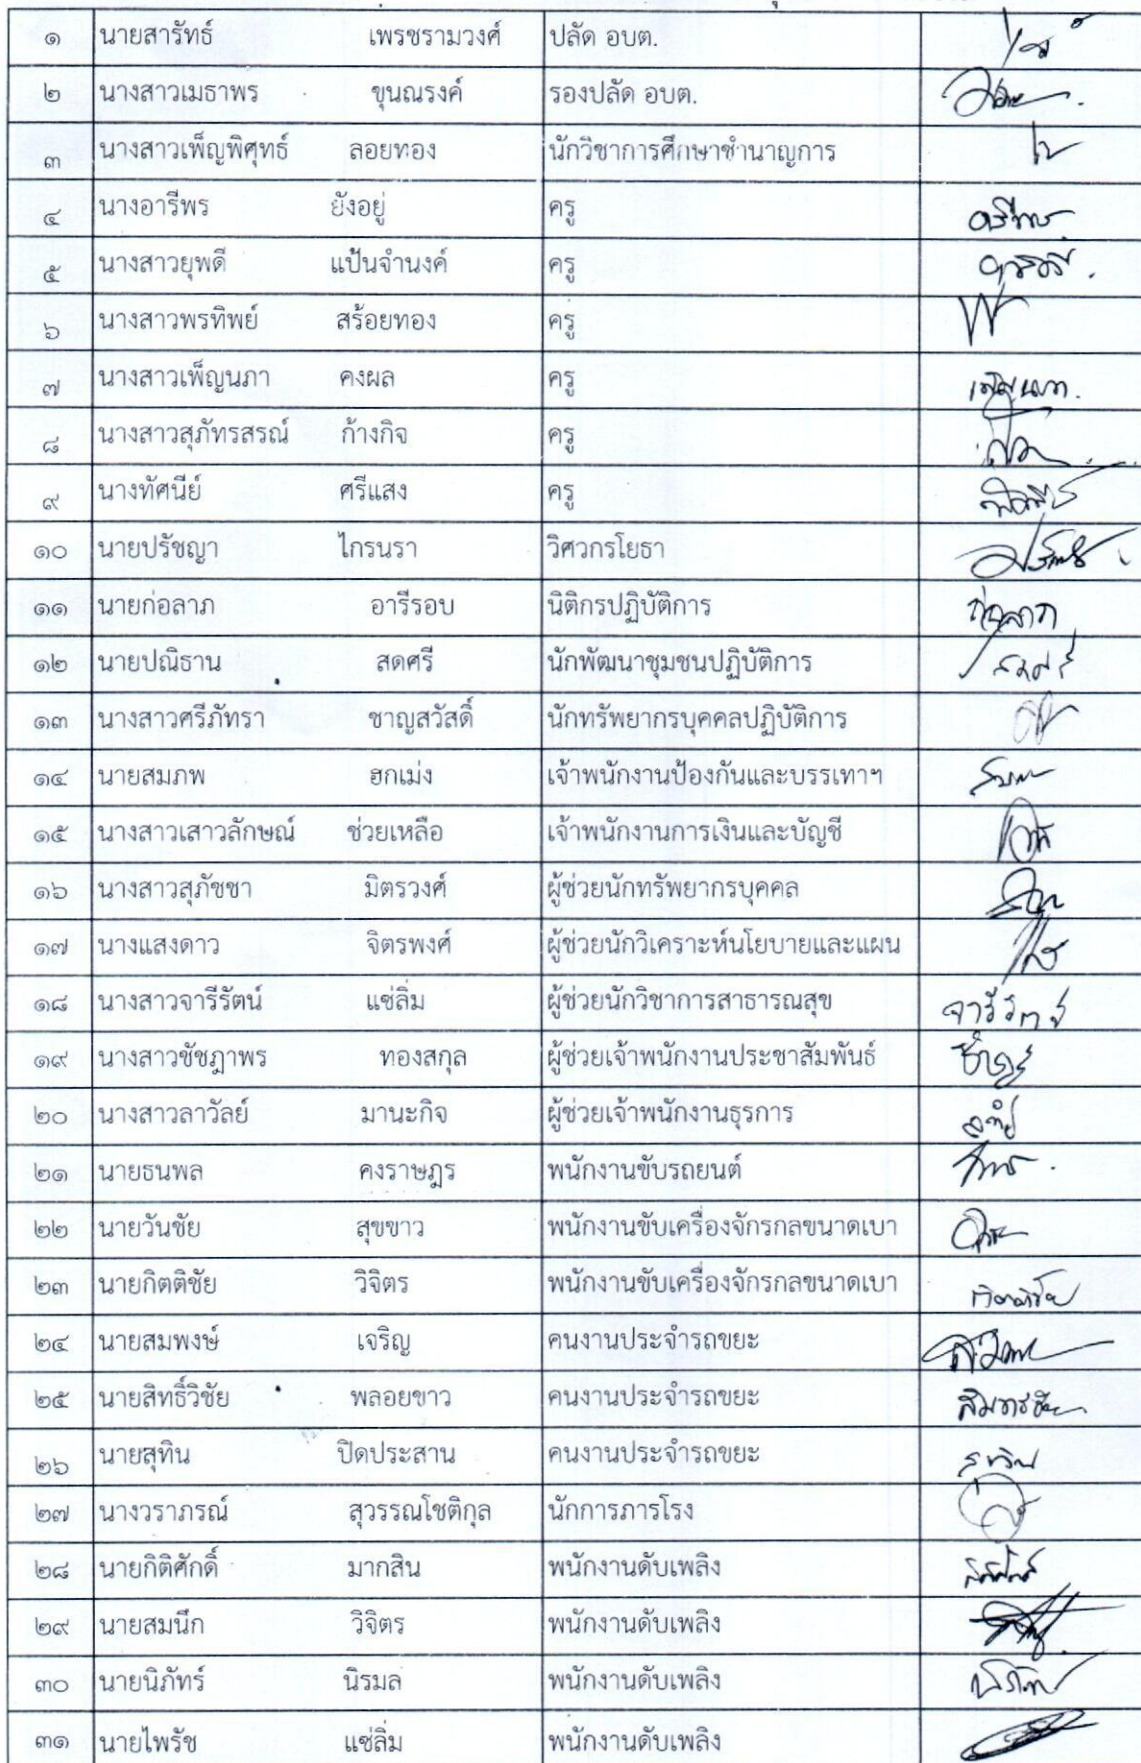 ๑ นายสารัทธ์ เพรชรามวงศ์ ปลัด อบต.
๒ นางสาวเมธาพร ขุนณรงค์ รองปลัด อบต.
๓ นางสาวเพ็ญพิศุทธ์ ลอยทอง นักวิชาการศึกษาชำนาญการ
๔ นางอารีพร ยังอยู่ ครู
๕ นางสาวยุพดี แป้นจำนงค์ ครู
๖ นางสาวพรทิพย์ สร้อยทอง ครู
๗ นางสาวเพ็ญนภา คงผล ครู เพ็ญนภา
๘ นางสาวสุภัทรสรณ์ ก้างกิจ ครู
๙ นางทัศนีย์ ศรีแสง ครู
๑๐ นายปรัชญา ไกรนรา วิศวกรโยธา
๑๑ นายก่อลาภ อารีรอบ นิติกรปฏิบัติการ ก่อลาภ
๑๒ นายปณิธาน สดศรี นักพัฒนาชุมชนปฏิบัติการ
๑๓ นางสาวศรีภัทรา ชาญสวัสดิ์ นักทรัพยากรบุคคลปฏิบัติการ
๑๔ นายสมภพ ฮกเม่ง เจ้าพนักงานป้องกันและบรรเทาฯ
๑๕ นางสาวเสาวลักษณ์ ช่วยเหลือ เจ้าพนักงานการเงินและบัญชี
๑๖ นางสาวสุภัชชา มิตรวงศ์ ผู้ช่วยนักทรัพยากรบุคคล
๑๗ นางแสงดาว จิตรพงศ์ ผู้ช่วยนักวิเคราะห์นโยบายและแผน
๑๘ นางสาวจารีรัตน์ แซ่ลิ่ม ผู้ช่วยนักวิชาการสาธารณสุข จารีรัตน์
๑๙ นางสาวชัชฎาพร ทองสกุล ผู้ช่วยเจ้าพนักงานประชาสัมพันธ์
๒๐ นางสาวลาวัลย์ มานะกิจ ผู้ช่วยเจ้าพนักงานธุรการ
๒๑ นายธนพล คงราษฎร พนักงานขับรถยนต์
๒๒ นายวันชัย สุขขาว พนักงานขับเครื่องจักรกลขนาดเบา
๒๓ นายกิตติชัย วิจิตร พนักงานขับเครื่องจักรกลขนาดเบา กิตติชัย
๒๔ นายสมพงษ์ เจริญ คนงานประจำรถขยะ
๒๕ นายสิทธิ์วิชัย พลอยขาว คนงานประจำรถขยะ
๒๖ นายสุทิน ปิดประสาน คนงานประจำรถขยะ สุทิน
๒๗ นางวราภรณ์ สุวรรณโชติกุล นักการภารโรง
๒๘ นายกิติศักดิ์ มากสิน พนักงานดับเพลิง
๒๙ นายสมนึก วิจิตร พนักงานดับเพลิง
๓๐ นายนิภัทร์ นิรมล พนักงานดับเพลิง
๓๑ นายไพรัช แซ่ลิ่ม พนักงานดับเพลิง